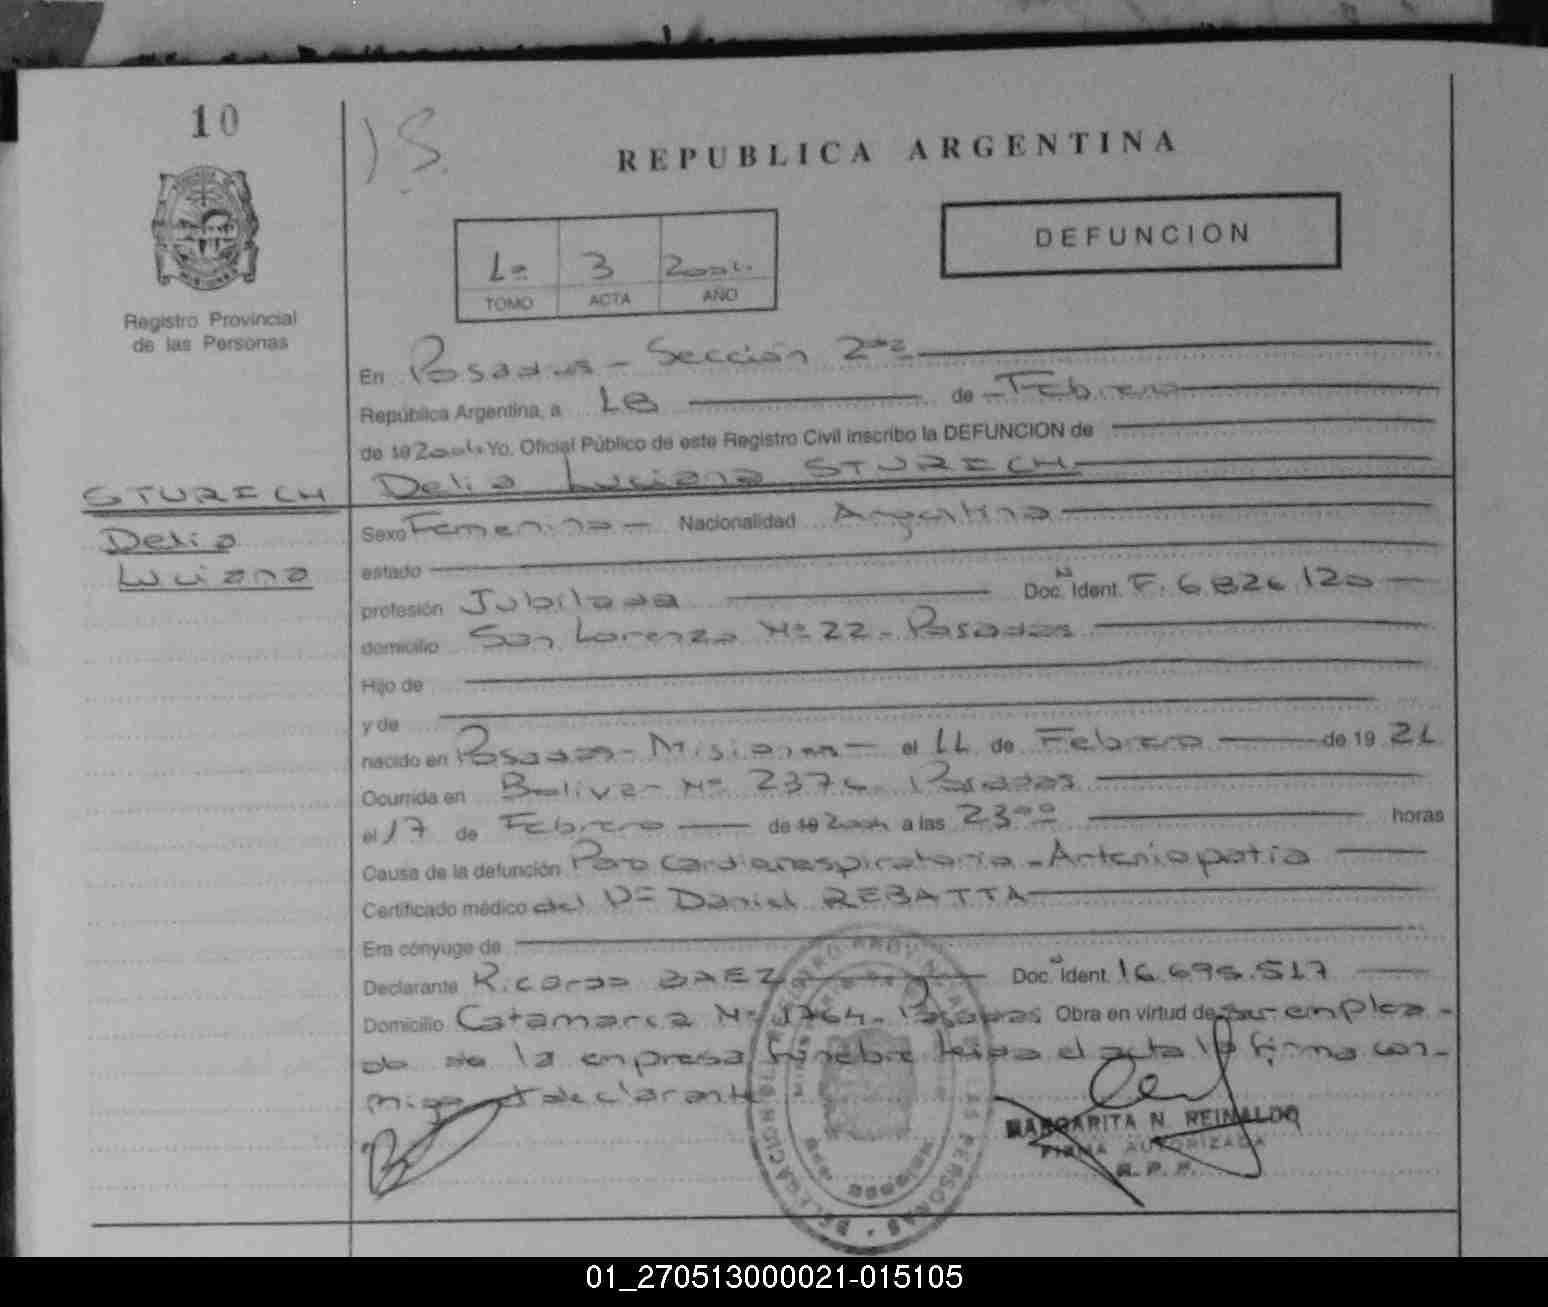 10
REPUBLICA ARGENTINA
DEFUNCION
1º 3 2004
TOMO ACTA AÑO
Registro Provincial
de las Personas
En Posadas - Sección 2da
República Argentina, a 18 de Febrero
de 19 2004 Yo, Oficial Público de este Registro Civil inscribo la DEFUNCION de
Delia Luciana STURECH
STURECH
Delia
Luciana
Sexo Femenino - Nacionalidad Argentina
estado
profesión Jubilada Doc. Ident. F. 6.826.120
domicilio San Lorenzo Nº 22 - Posadas
Hijo de
y de
nacido en Posadas - Misiones - el 11 de Febrero de 19 21
Ocurrida en Bolivar Nº 2376 Posadas
el 17 de Febrero de 19 2004 a las 23 oo horas
Causa de la defunción Paro cardiorrespiratorio - Arteriopatia
Certificado médico del Dr Daniel REBATTA
Era cónyuge de
Declarante Ricardo BAEZ Doc. Ident. 16.695.517
Domicilio Catamarca Nº 1764 - Posadas Obra en virtud de ser emplea-
do de la empresa fúnebre leida el acta la firma con-
migo el declarante
MARGARITA N. REINALDO
FIRMA AUTORIZADA
R. P. P.
01_270513000021-015105